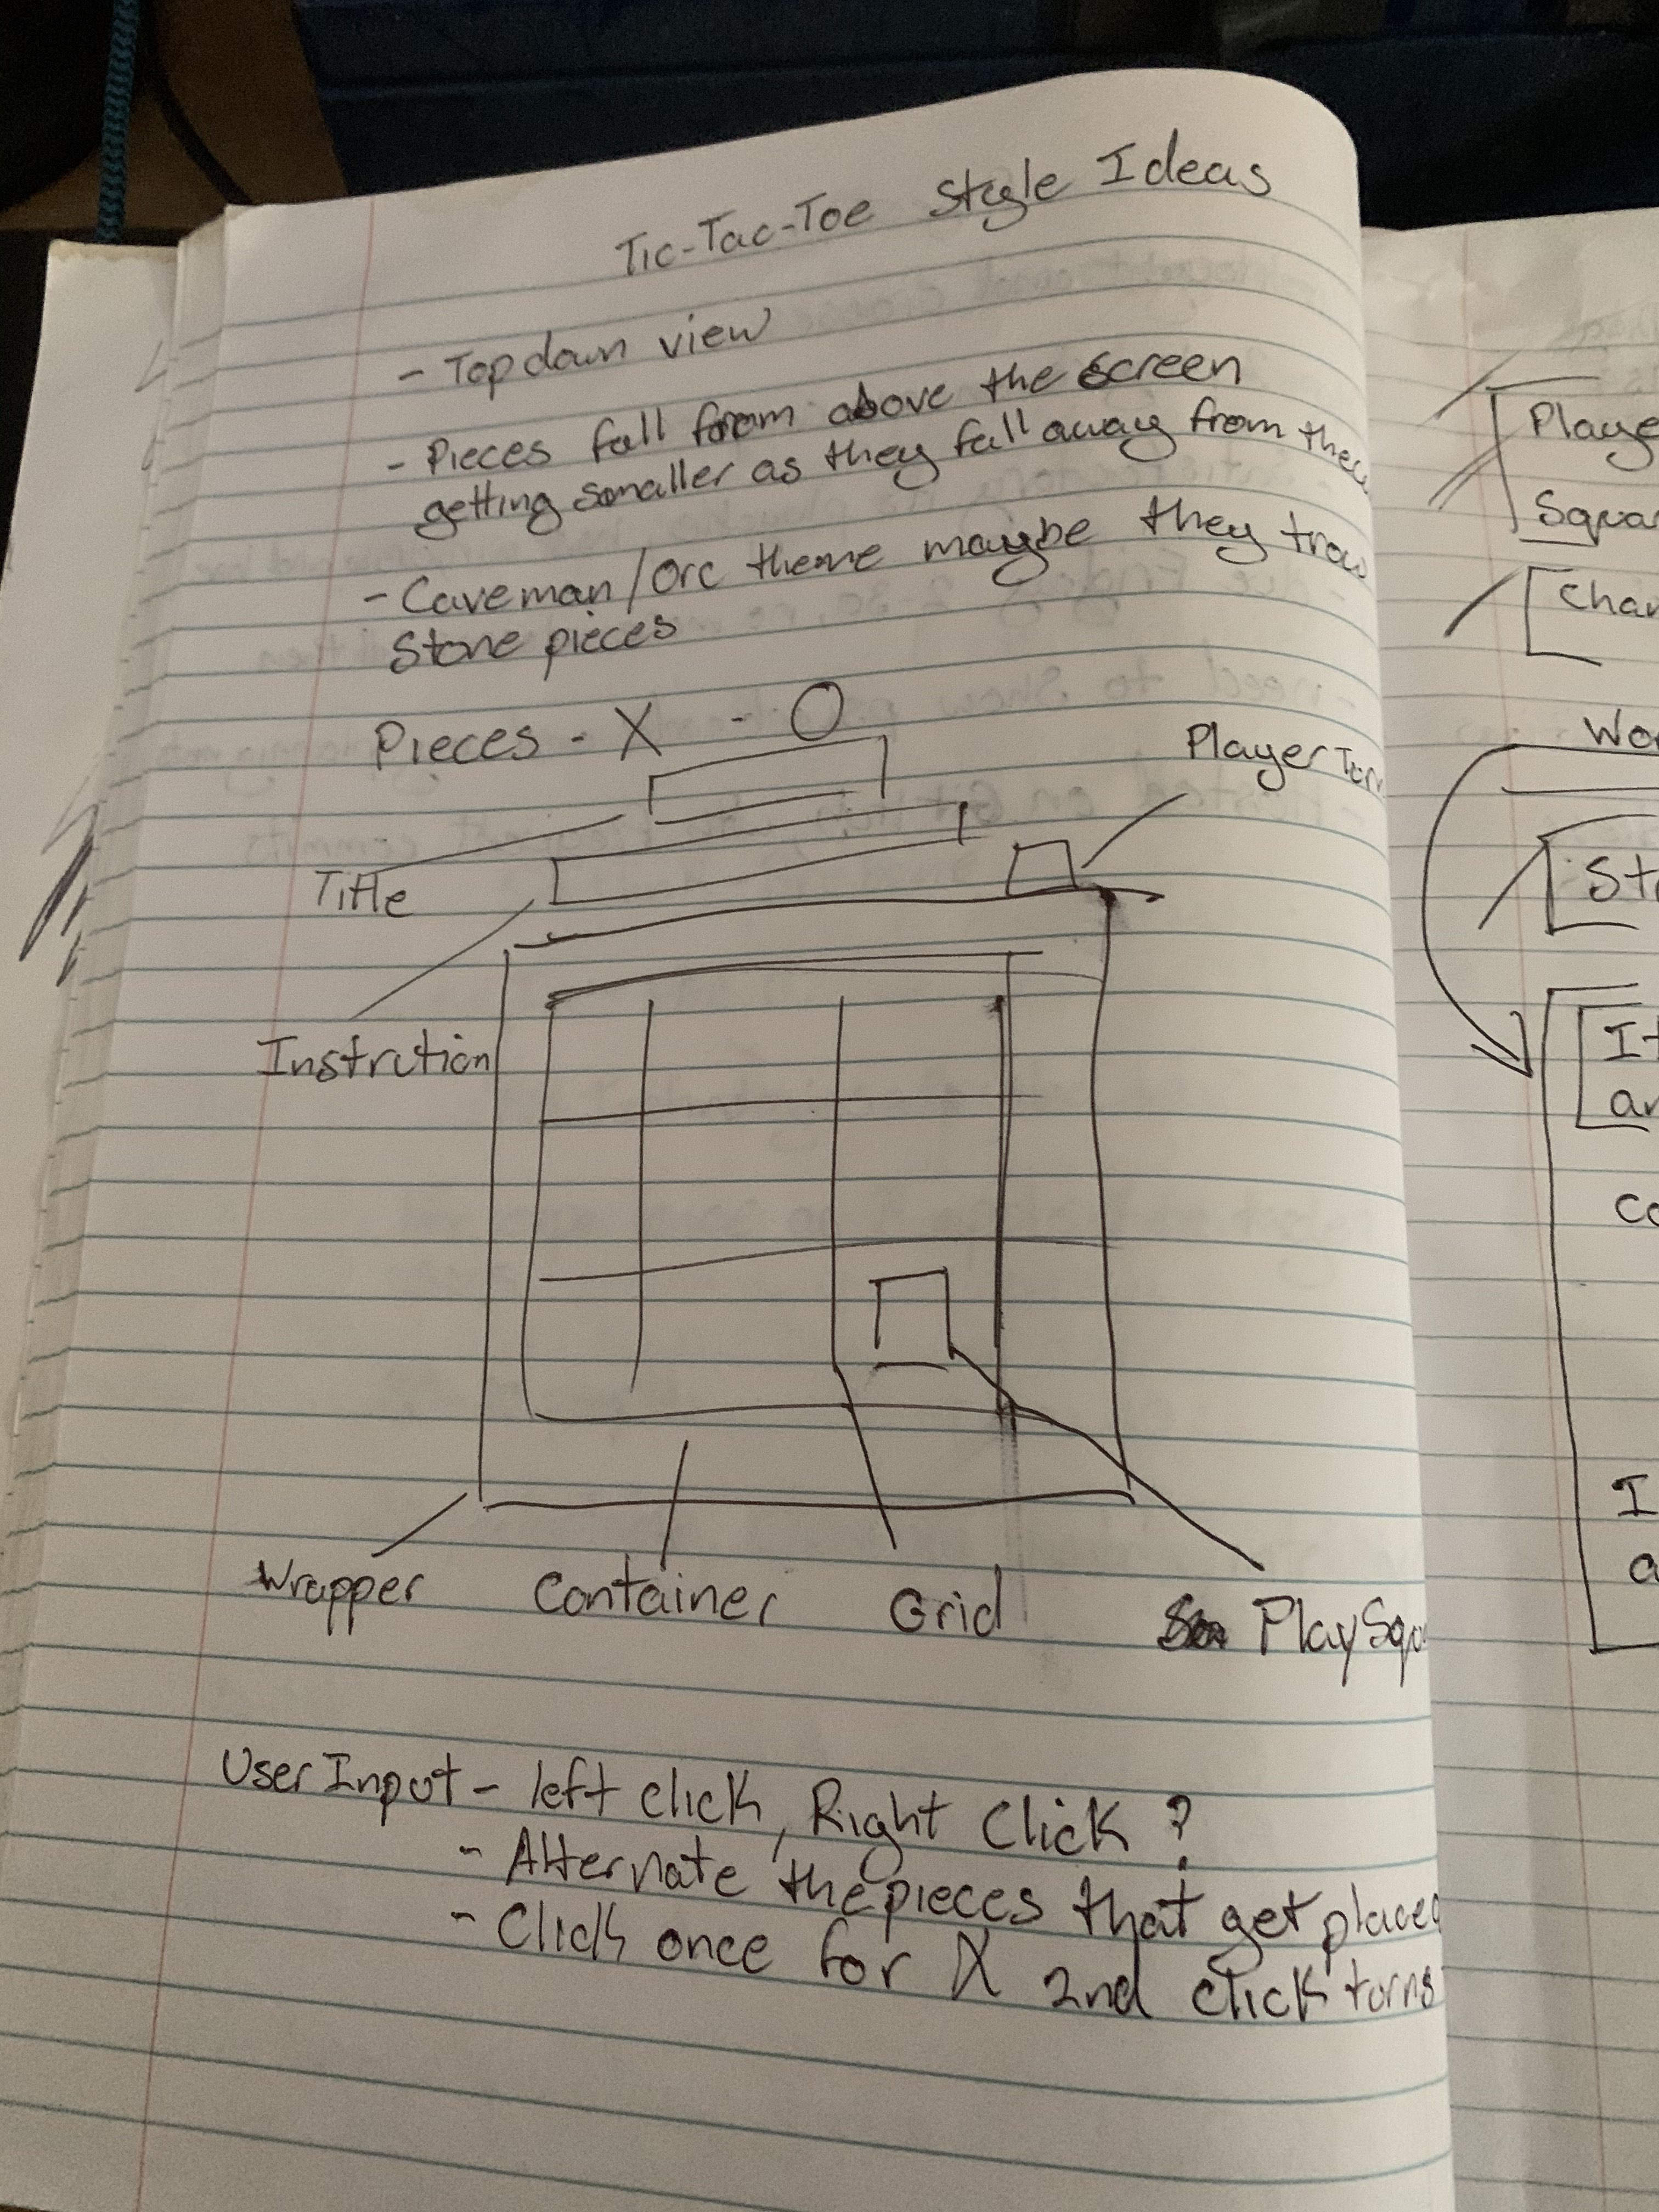 Tic-Tac-Toe Style Ideas
- Top down view
- Pieces fall from above the screen
getting smaller as they fall away from the
- Caveman/Orc theme maybe they trow
Stone pieces
Pieces - X - O
Player Turn
Title
Instrution
Wrapper Container Grid PlaySqu
User Input - left click, Right Click ?
- Alternate the pieces that get placed
- Click once for X 2nd click turns
Playe
Squa
Char
Wo
St
It
a
Co
I
a